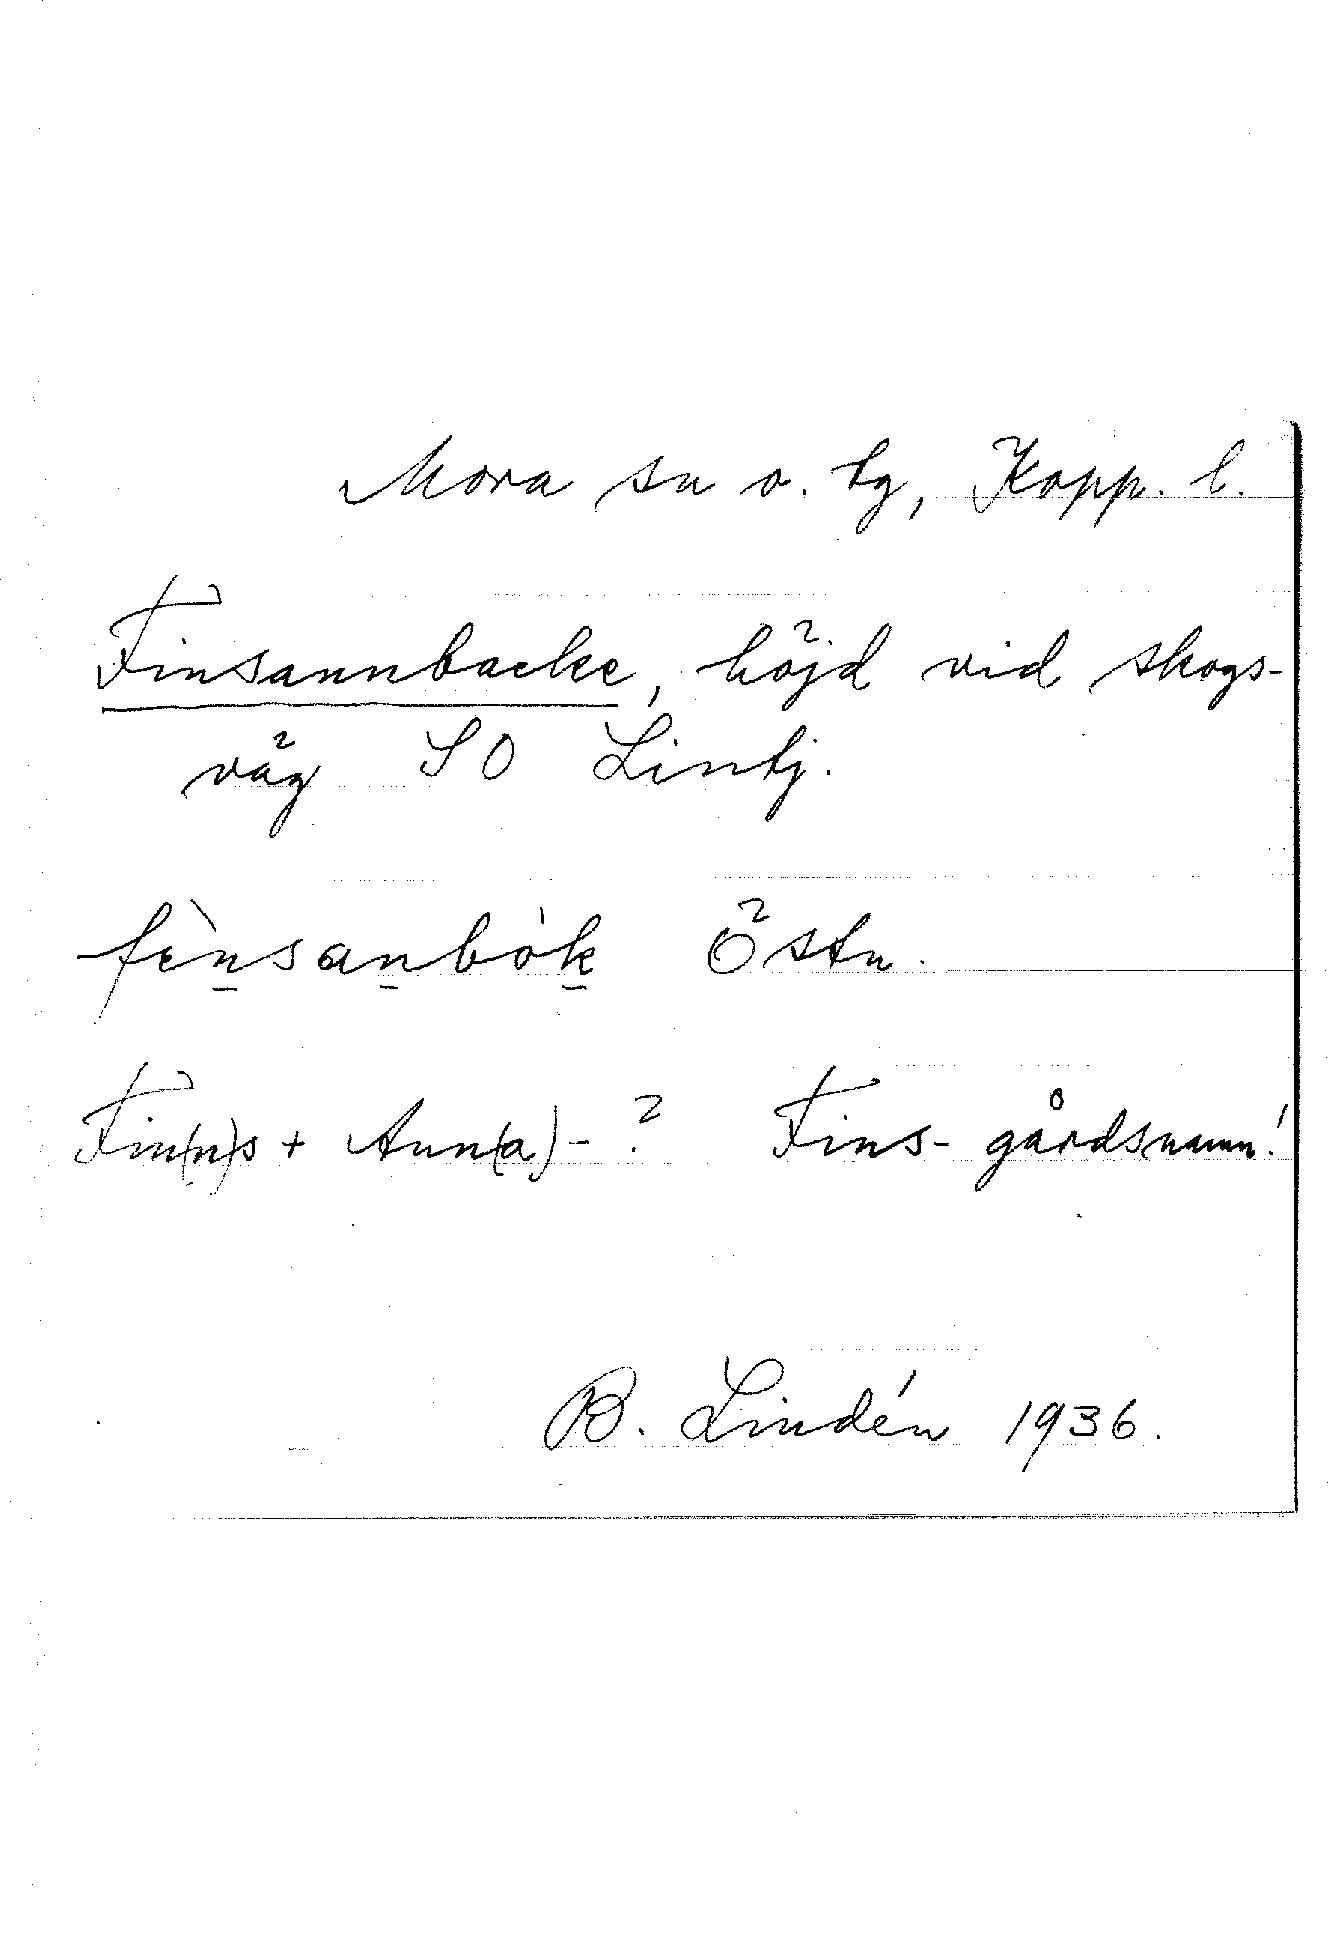 Mora sn o. tg, Kopp. l.
Finsannbacke, höjd vid skogs-
väg SO Lintj.
fènsanbók Östn.
Fin(n)s + Ann(a)-? Fins- gårdsnamn!
B. Lindén 1936.